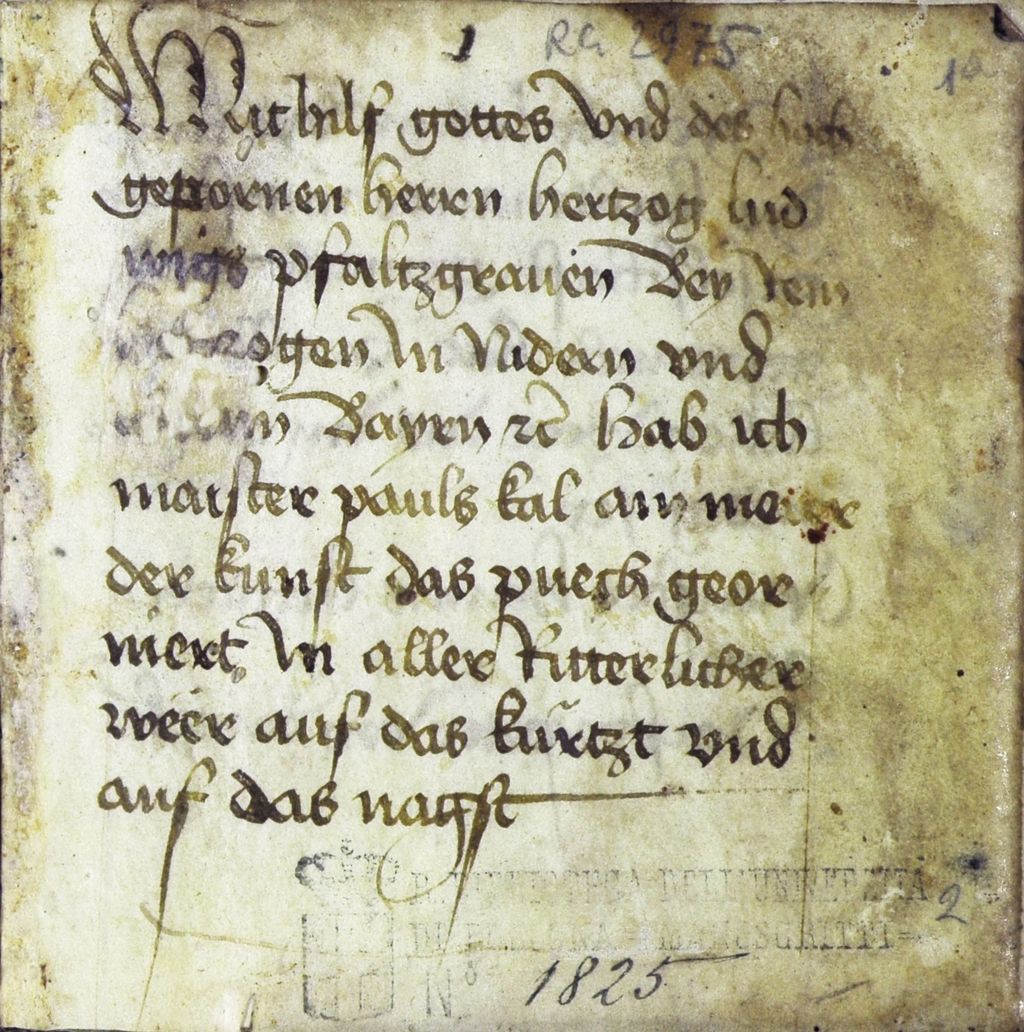 RG 2975
1a
Mit hilf gottes vnd des hoch
gepornen herrn hertzog lud
wigs pfaltzgrauen Bey Rein
hertzogen In Nidern vnd
obern Bayrn etc hab ich
maister pauls kal ain meister
der kunst das puech geor
niert In aller Ritterlicher
weer auf das kürtzt vnd
auf das nagst
R. BIBLIOTECA DELL'UNIVERSITÀ
2
DI BOLOGNA = MANOSCRITTI =
N° 1825